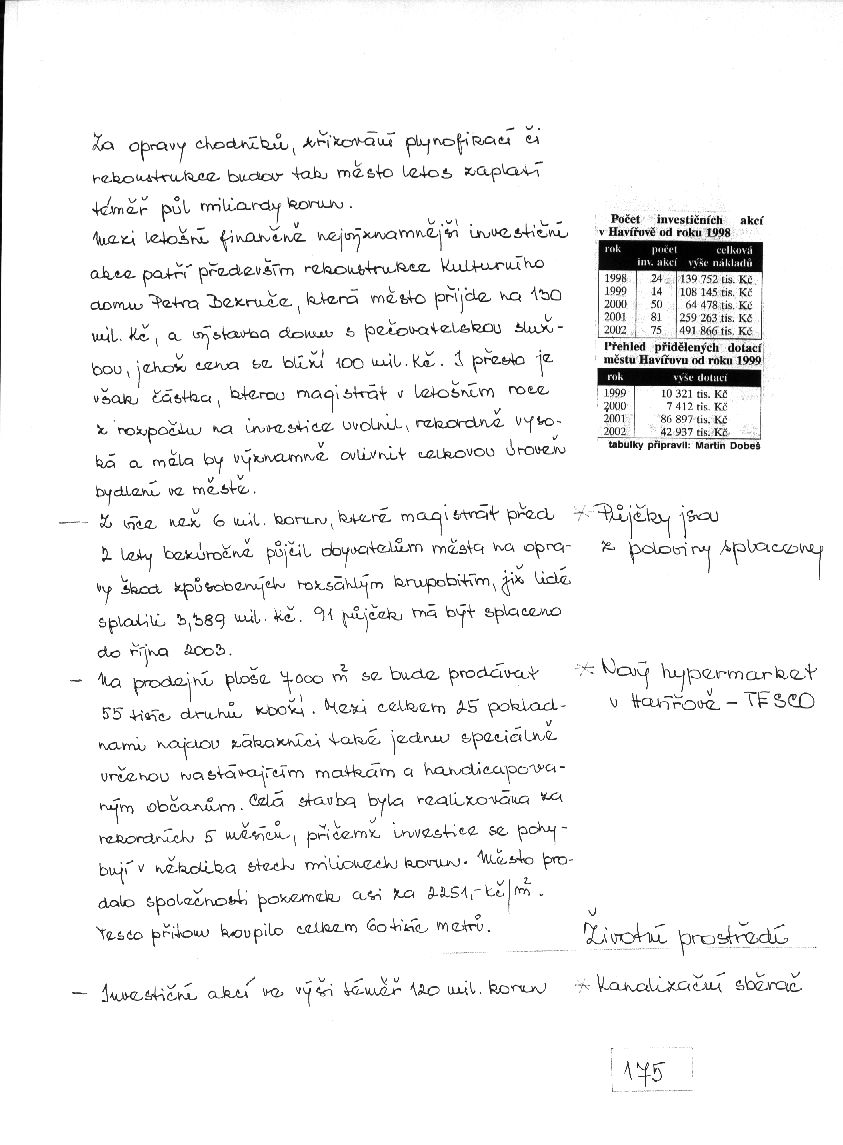 Za opravy chodníků, křižování plynofikací či
rekonstrukce budov tak město letos zaplatí
téměř půl miliardy korun.
Mezi letošní finančně nejvýznamnější investiční
akce patří především rekonstrukce Kulturního
domu Petra Bezruče, která město přijde na 130
mil. Kč, a výstavba domu s pečovatelskou služ-
bou, jehož cena se blíží 100 mil. Kč. I přesto je
však částka, kterou magistrát v letošním roce
z rozpočtu na investice uvolnil, rekordně vyso-
ká a měla by významně ovlivnit celkovou úroveň
bydlení ve městě.
— Z více než 6 mil. korun, které magistrát před
2 lety bezúročně půjčil obyvatelům města na opra-
vy škod způsobených rozsáhlým krupobitím, již lidé
splatili 3,389 mil. Kč. 91 půjček má být splaceno
do října 2003.
– Na prodejní ploše 7000 m² se bude prodávat
55 tisíc druhů zboží. Mezi celkem 25 poklad-
nami najdou zákazníci také jednu speciálně
určenou nastávajícím matkám a handicapova-
ným občanům. Celá stavba byla realizována za
rekordních 5 měsíců, přičemž investice se pohy-
bují v několika stech milionech korun. Město pro-
dalo společnosti pozemek asi za 2251,- Kč/m².
Tesco přitom koupilo celkem 60 tisíc metrů.
– Investiční akcí ve výši téměř 120 mil. korun
Počet investičních akcí
v Havířově od roku 1998
rok počet celková
inv. akcí výše nákladů
1998 24 139 752 tis. Kč
1999 14 108 145 tis. Kč
2000 50 64 478 tis. Kč
2001 81 259 263 tis. Kč
2002 75 491 866 tis. Kč
Přehled přidělených dotací
městu Havířovu od roku 1999
rok výše dotací
1999 10 321 tis. Kč
2000 7 412 tis. Kč
2001 86 897 tis. Kč
2002 42 937 tis. Kč
tabulky připravil: Martin Dobeš
* Půjčky jsou
z poloviny splaceny
* Nový hypermarket
v Havířově – TESCO
Životní prostředí
* Kanalizační sběrač
175